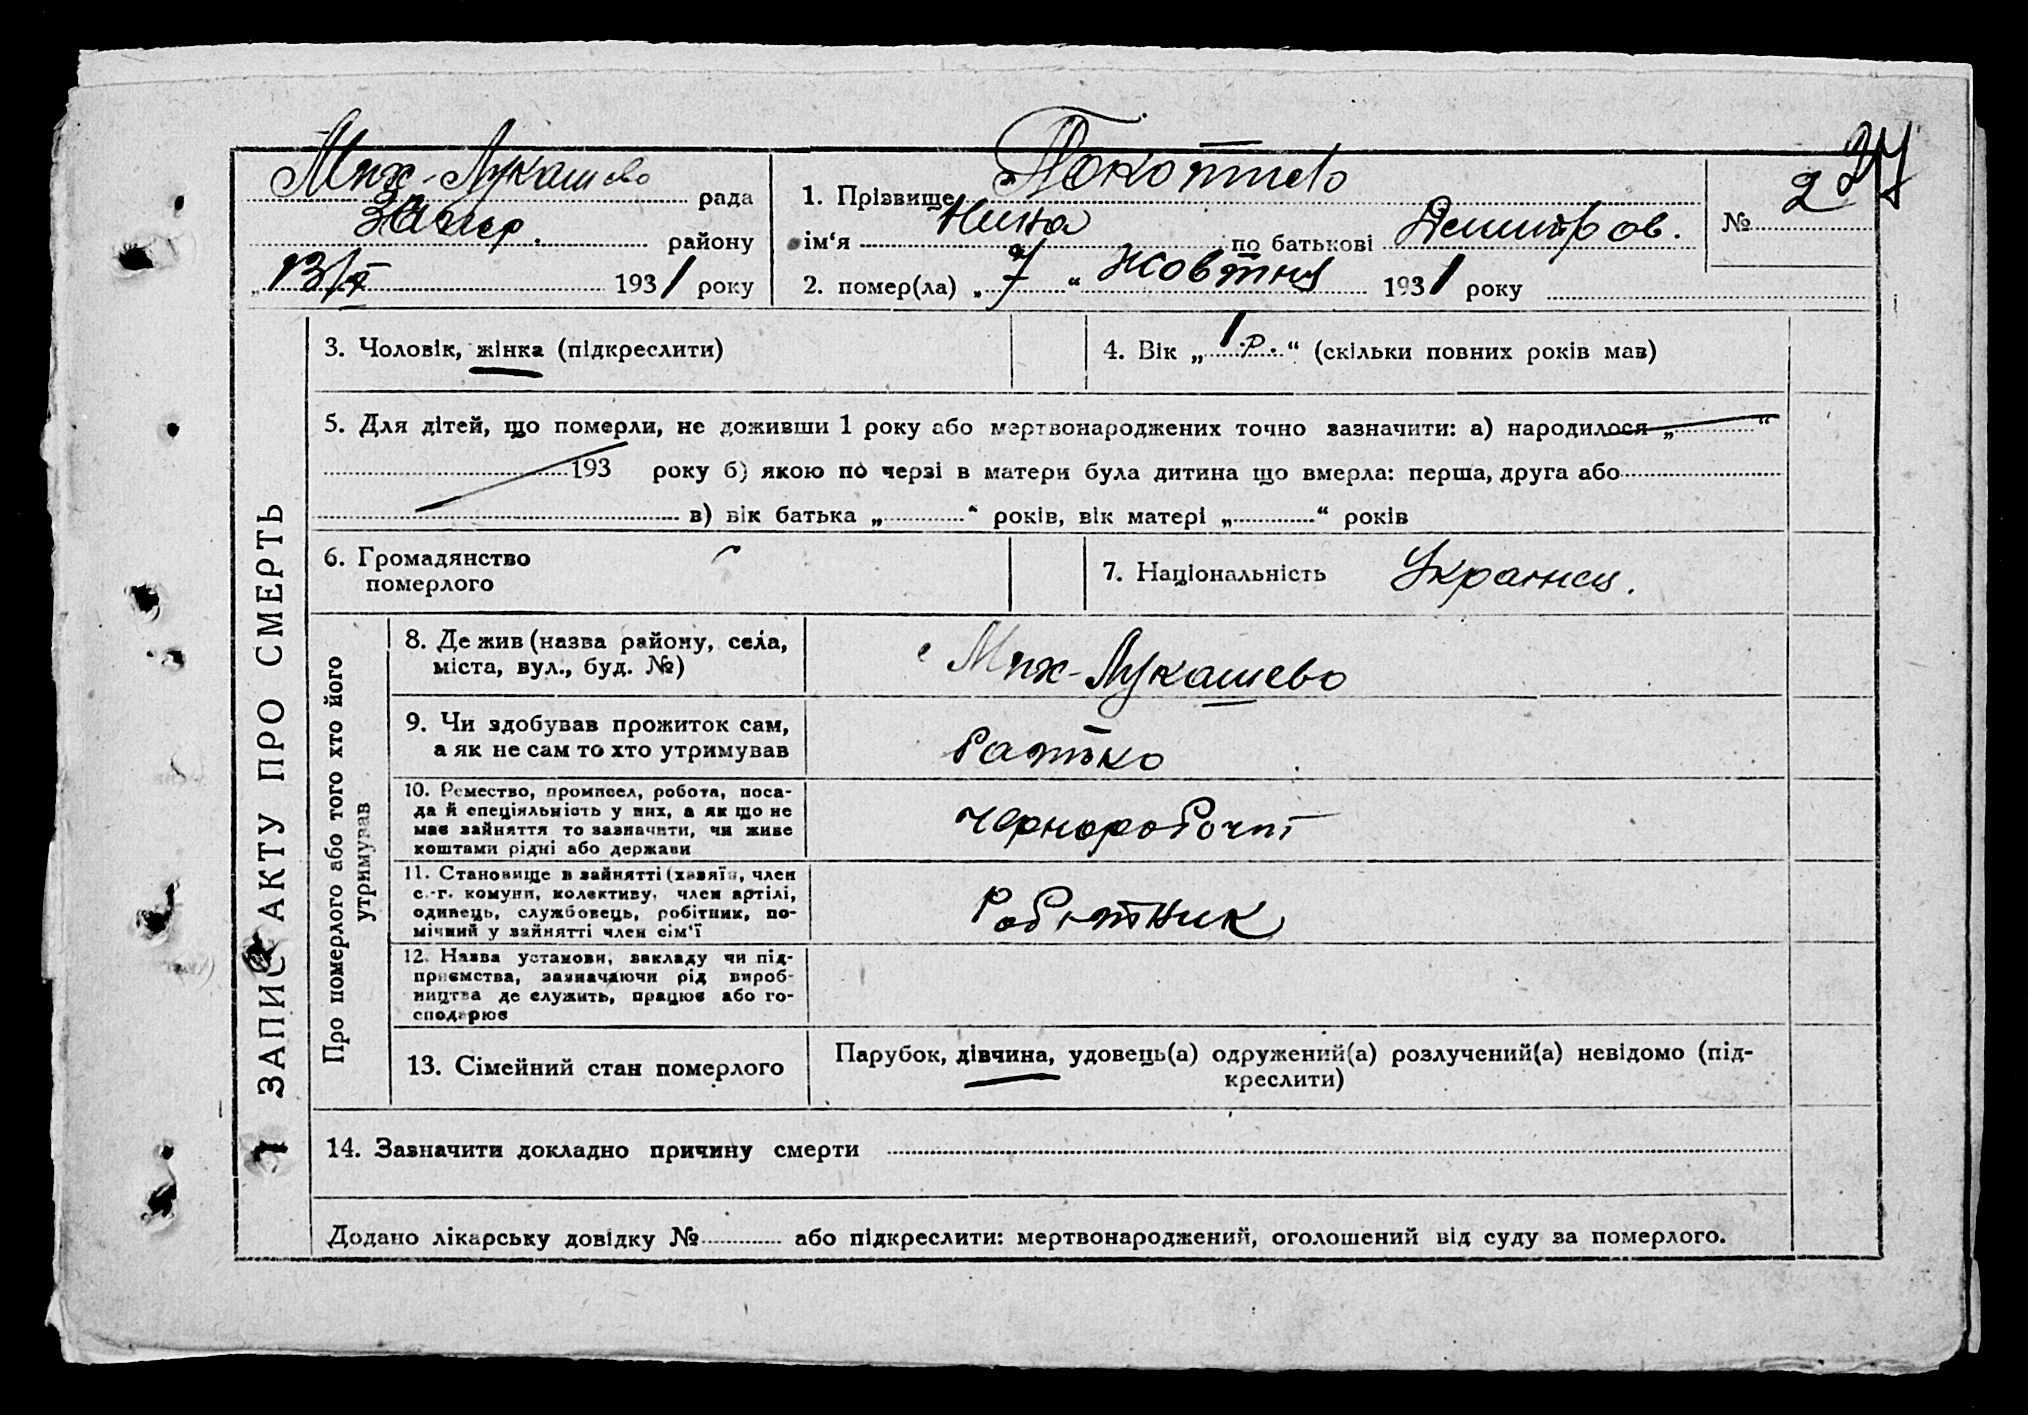 27
Мих-Лукашево рада
Запор. району
"13/X 1931 року
1. Прізвище Покотило
ім'я Нина по батькові Дмитров.
2. помер(ла) „7" жовтня 1931 року
№ 2
ЗАПИС АКТУ ПРО СМЕРТЬ
3. Чоловік, жінка (підкреслити)
4. Вік „1 р." (скільки повних років мав)
5. Для дітей, що померли, не доживши 1 року або мертвонароджених точно зазначити: а) народилося „ "
193 року б) якою по черзі в матери була дитина що вмерла: перша, друга або
в) вік батька „ " років, вік матері „ " років
6. Громадянство
померлого
7. Національність Украинец.
Про померлого або того хто його
утримував
8. Де жив (назва району, села,
міста, вул., буд. №)
Мих-Лукашево
9. Чи здобував прожиток сам,
а як не сам то хто утримував
батько
10. Ремество, промисел, робота, поса-
да й спеціяльність у них, а як що не
має зайняття то зазначити, чи живе
коштами рідні або держави
чернороботи
11. Становище в зайнятті (хазяїн, член
с.-г. комуни, колективу, член артілі,
одинець, службовець, робітник, по-
мічний у зайнятті член сім'ї
Робітник
12. Назва установи, закладу чи під-
приємства, зазначаючи рід вироб-
ництва де служить, працює або го-
сподарює
13. Сімейний стан померлого
Парубок, дівчина, удовець(а) одружений(а) розлучений(а) невідомо (під-
креслити)
14. Зазначити докладно причину смерти
Додано лікарську довідку № або підкреслити: мертвонароджений, оголошений від суду за померлого.